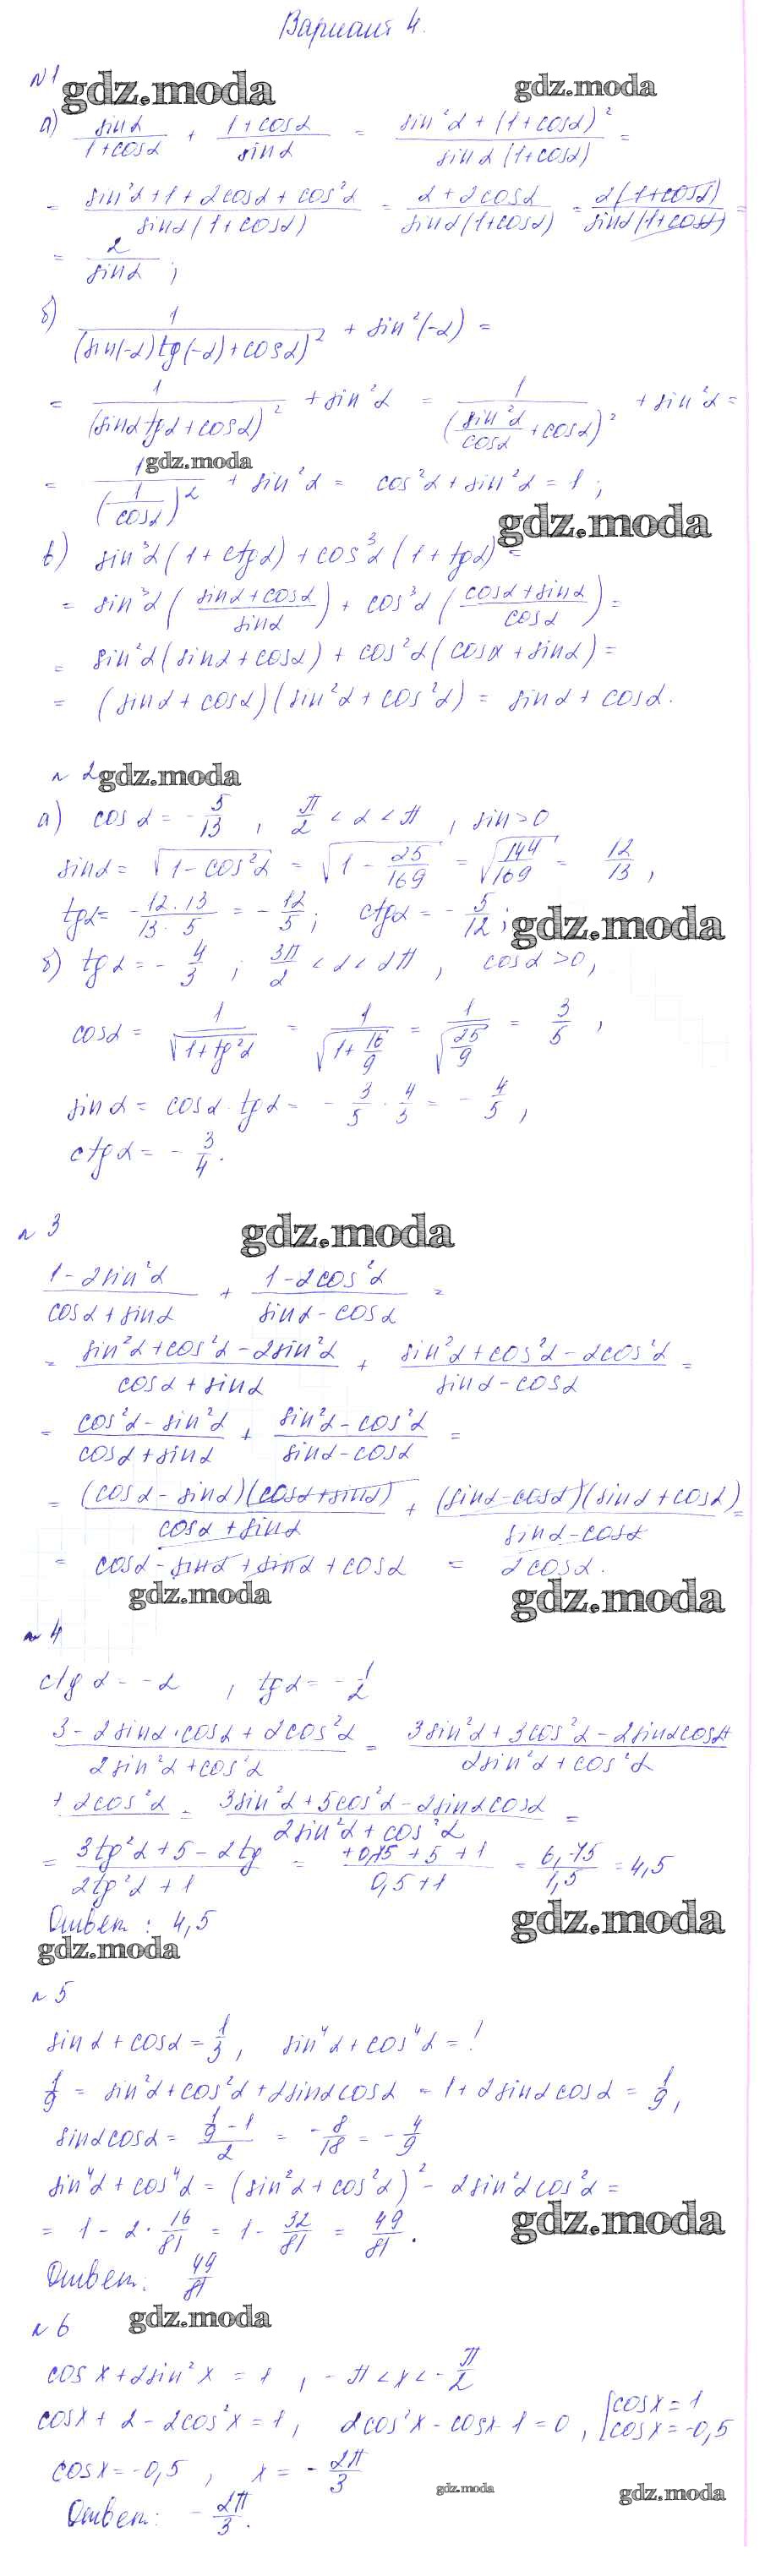 Вариант 4.
№1
gdz.moda gdz.moda
а) sinα/(1+cosα) + (1+cosα)/sinα = (sin²α + (1+cosα)²)/(sinα(1+cosα)) =
= (sin²α+1+2cosα+cos²α)/(sinα(1+cosα)) = (2+2cosα)/(sinα(1+cosα)) = 2(1+cosα)/(sinα(1+cosα)) =
= 2/sinα ;
б) 1/(sin(-α)tg(-α)+cosα)² + sin²(-α) =
= 1/(sinα tgα+cosα)² + sin²α = 1/(sin²α/cosα + cosα)² + sin²α =
gdz.moda
= 1/(1/cosα)² + sin²α = cos²α + sin²α = 1 ;
gdz.moda
в) sin³α(1+ctgα) + cos³α(1+tgα) =
= sin³α((sinα+cosα)/sinα) + cos³α((cosα+sinα)/cosα) =
= sin²α(sinα+cosα) + cos²α(cosα+sinα) =
= (sinα+cosα)(sin²α+cos²α) = sinα+cosα.
№2 gdz.moda
а) cosα = -5/13 , π/2 < α < π , sin>0
sinα = √(1-cos²α) = √(1 - 25/169) = √(144/169) = 12/13 ,
tgα = -(12·13)/(13·5) = -12/5 ; ctgα = -5/12 ; gdz.moda
б) tgα = -4/3 ; 3π/2 < α < 2π , cosα>0,
cosα = 1/√(1+tg²α) = 1/√(1+16/9) = 1/√(25/9) = 3/5 ,
sinα = cosα·tgα = -3/5 · 4/3 = -4/5 ,
ctgα = -3/4 .
№3 gdz.moda
(1-2sin²α)/(cosα+sinα) + (1-2cos²α)/(sinα-cosα) =
= (sin²α+cos²α-2sin²α)/(cosα+sinα) + (sin²α+cos²α-2cos²α)/(sinα-cosα) =
= (cos²α-sin²α)/(cosα+sinα) + (sin²α-cos²α)/(sinα-cosα) =
= (cosα-sinα)(cosα+sinα)/(cosα+sinα) + (sinα-cosα)(sinα+cosα)/(sinα-cosα) =
= cosα-sinα+sinα+cosα = 2cosα.
gdz.moda gdz.moda
№4
ctgα = -2 , tgα = -1/2
(3-2sinα·cosα+2cos²α)/(2sin²α+cos²α) = (3sin²α+3cos²α-2sinαcosα+)/(2sin²α+cos²α)
+2cos²α = (3sin²α+5cos²α-2sinαcosα)/(2sin²α+cos²α) =
= (3tg²α+5-2tg)/(2tg²α+1) = (+0,75+5+1)/(0,5+1) = 6,75/1,5 = 4,5
Ответ: 4,5 gdz.moda
gdz.moda
№5
sinα+cosα = 1/3 , sin⁴α+cos⁴α = ?
1/9 = sin²α+cos²α+2sinαcosα = 1+2sinαcosα = 1/9 ,
sinαcosα = (1/9-1)/2 = -8/18 = -4/9
sin⁴α+cos⁴α = (sin²α+cos²α)² - 2sin²αcos²α =
= 1 - 2·16/81 = 1 - 32/81 = 49/81 . gdz.moda
Ответ: 49/81
№6 gdz.moda
cosx+2sin²x = 1 , -π<x<-π/2
cosx+2-2cos²x=1, 2cos²x-cosx-1=0, [cosx=1 cosx=-0,5
cosx=-0,5 , x = -2π/3
gdz.moda gdz.moda
Ответ: -2π/3 .